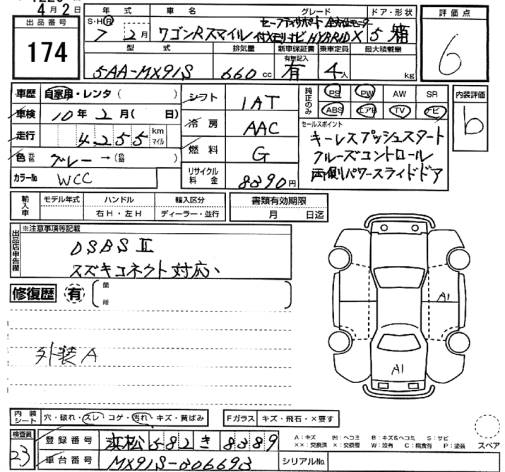 4月2日
出品番号
174
S・H・R 年 月
7 2月
車名
ワゴンRスマイル
グレード
HYBRID X
ドア・形状
5 箱
評価点
6
型式
5AA-MX91S
排気量
660 cc
新車保証書
有無記入
有
乗車定員
4人
最大積載量
kg
車歴 自家用・レンタ( )
車検 10年2月( 日)
走行 4255 km マイル
色 グレー→( )
カラーNo WCC
シフト IAT
冷房 AAC
燃料 G
リサイクル料金 8890円
純正のみ
PS PW AW SR
ABS エアB TV ナビ
内装評価
b
セールスポイント
キーレスプッシュスタート
クルーズコントロール
両側パワースライドドア
輸入車
モデル年式 ハンドル 輸入区分
右H・左H ディーラー・並行
書類有効期限
月 日迄
出品店申告欄
※注意事項等記載
DSBS II
スズキコネクト対応
修復歴 有
箇所
外装A
A1
A1
内装シート 穴・破れ・スレ・コゲ・汚れ・キズ・黄ばみ
Fガラス キズ・飛石・×要す
検査員
23
登録番号 浜松582き8389
車台番号 MX91S-306693
シリアルNo.
スペア